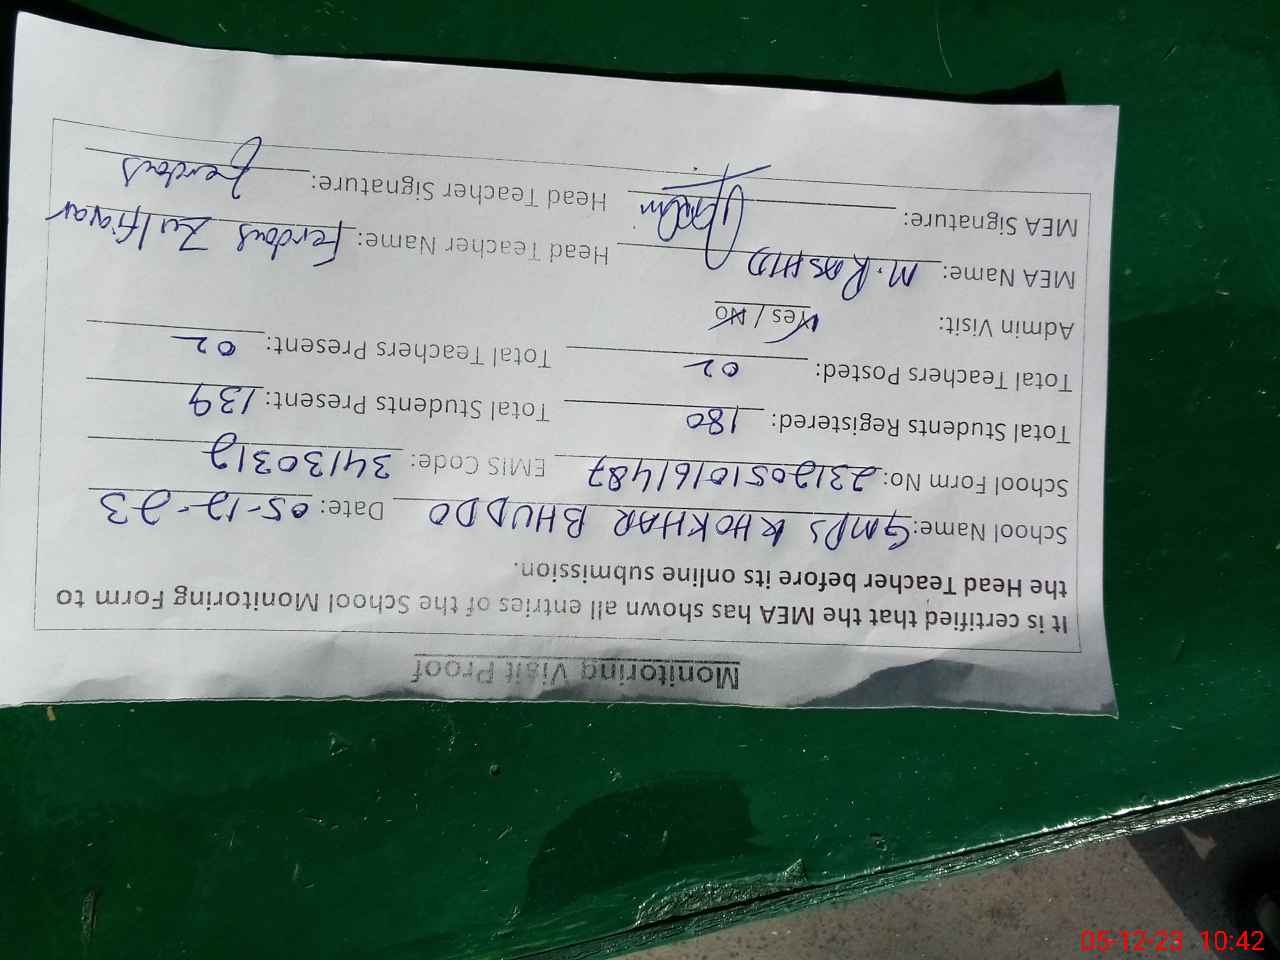 Monitoring Visit Proof
It is certified that the MEA has shown all entries of the School Monitoring Form to
the Head Teacher before its online submission.
School Name: GMPS KHOKHAR BHUDDO Date: 05-12-23
School Form No: 23120510161487 EMIS Code: 34130312
Total Students Registered: 180 Total Students Present: 139
Total Teachers Posted: 02 Total Teachers Present: 02
Admin Visit: Yes / No
MEA Name: M. RASHID Head Teacher Name: Ferdous Zulfiqar
MEA Signature: Head Teacher Signature: ferdous
05-12-23 10:42